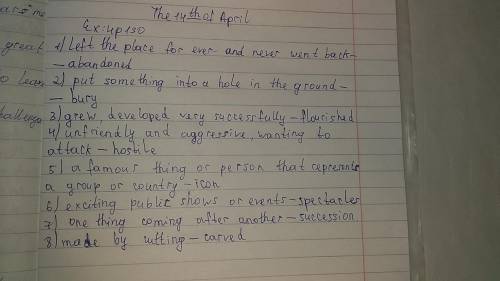 The 14th of April
Ex: 4p130
1) Left the place for ever and never went back-
- abandoned
2) put something into a hole in the ground-
- bury
3) grew, developed very successfully - flourished
4) unfriendly and aggressive, wanting to
attack - hostile
5) a famous thing or person that cepresents
a group or country - icon
6) exciting public shows or events - spectacles
7) one thing coming after another - succession
8) made by cutting - carved
great